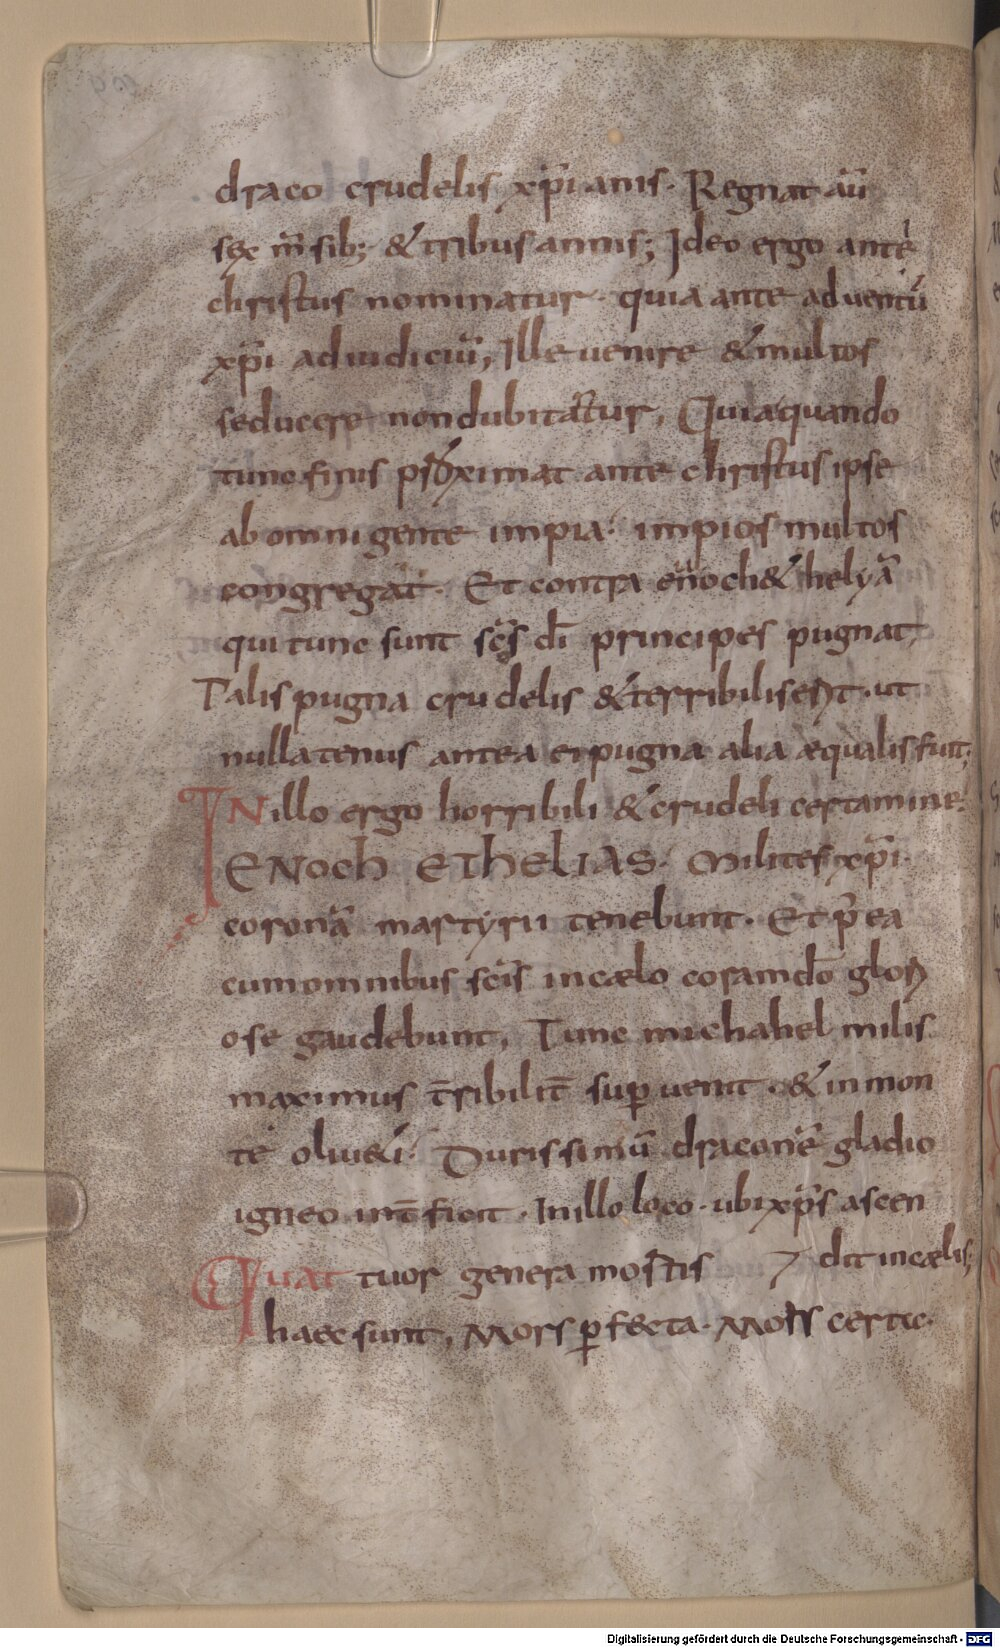 draco crudelis xp̄ianis. Regnat aū
sex m̄sib; & tribus annis; Ideo ergo ante
christus nominatur. quia ante adventū
xp̄i ad iudiciū, Ille venire & multos
seducere non dubitatur, Quia quando
tunc finis proximat ante christus ipse
ab omni gente impia. impios multos
congregat. Et contra enoch & helyā
qui tunc sunt sc̄s dī principes pugnat,
Talis pugna crudelis & terribilis erit. ut
nullatenus antea ei pugna alia aequalis fuit;
IN illo ergo horribili & crudeli certamine.
ENOCH ET HELIAS. Milites xp̄i.
coronā martyrii tenebunt. Et p̄ ea
cum omnibus sc̄is in caelo coram dō glori
ose gaudebunt, Tunc michahel milis
maximus t̄ribilit̄ sup̱ venit. & in mon
te oliu&i. Durissimū draconē gladio
igneo int̄ficit. In illo loco. ubi xp̄s ascen
dit in caelis;
Quattuor genera mortis
haec sunt, Mors p̱fecta. Mors certe.
Digitalisierung gefördert durch die Deutsche Forschungsgemeinschaft - DFG